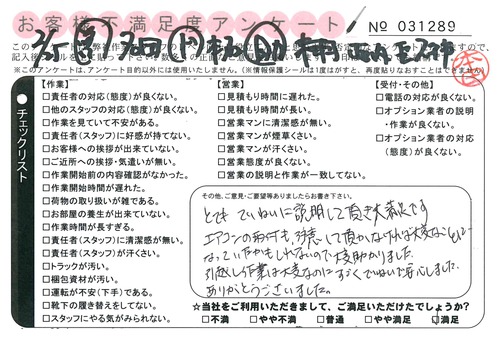 お客様不満足度アンケート
№ 031289
※このアンケートは、アンケート目的以外には使用いたしません。(※情報保護シールは1度はがすと、再度貼りなおすことはできません。)
チェックリスト
【作業】
□責任者の対応(態度)が良くない。
□他のスタッフの対応(態度)が良くない。
□作業を見ていて不安がある。
□責任者(スタッフ)に好感が持てない。
□お客様への挨拶が出来ていない。
□ご近所への挨拶・気遣いが無い。
□作業開始前の内容確認がなかった。
□作業開始時間が遅れた。
□荷物の取り扱いが雑である。
□お部屋の養生が出来ていない。
□作業時間が長すぎる。
□責任者(スタッフ)に清潔感が無い。
□責任者(スタッフ)が汗くさい。
□トラックが汚い。
□梱包資材が汚い。
□運転が不安(下手)である。
□靴下の履き替えをしてない。
□スタッフにやる気がみられない。
【営業】
□見積もり時間に遅れた。
□見積もり時間が長い。
□営業マンに清潔感が無い。
□営業マンが煙草くさい。
□営業マンが汗くさい。
□営業態度が良くない。
□営業の説明と作業が一致してない。
【受付・その他】
□電話の対応が良くない。
□オプション業者の説明
・作業が良くない。
□オプション業者の対応
(態度)が良くない。
その他、ご意見・ご要望等ありましたらお書き下さい。
とても ていねいに説明して頂き大満足です
エアコンの取付も
して頂かなければ大変なことに
なっていたかもしれないので大変助かりました。
引越し作業は大変なのにすごくていねいで安心しました。
ありがとうございました。
★当社をご利用いただきまして、ご満足いただけたでしょうか?
□不満 □やや不満 □普通 □やや満足 □満足